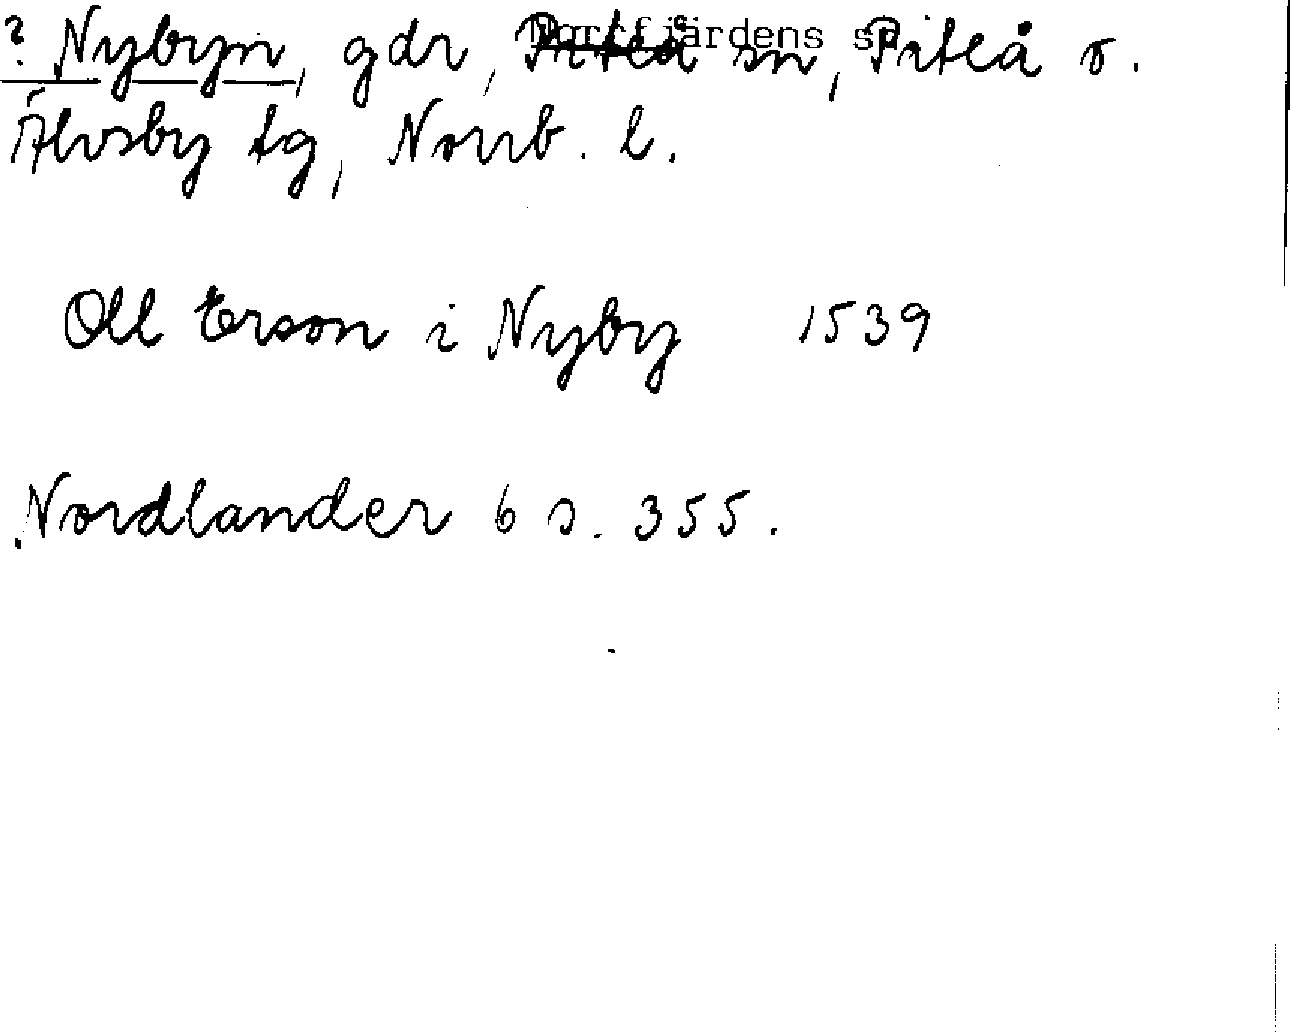 ? Nybyn, gdr, Piteå sn, Norrfjärdens sn, Piteå o.
Älvsby tg, Norrb. l.
Oll Erson i Nyby 1539
Nordlander 6 s. 355.